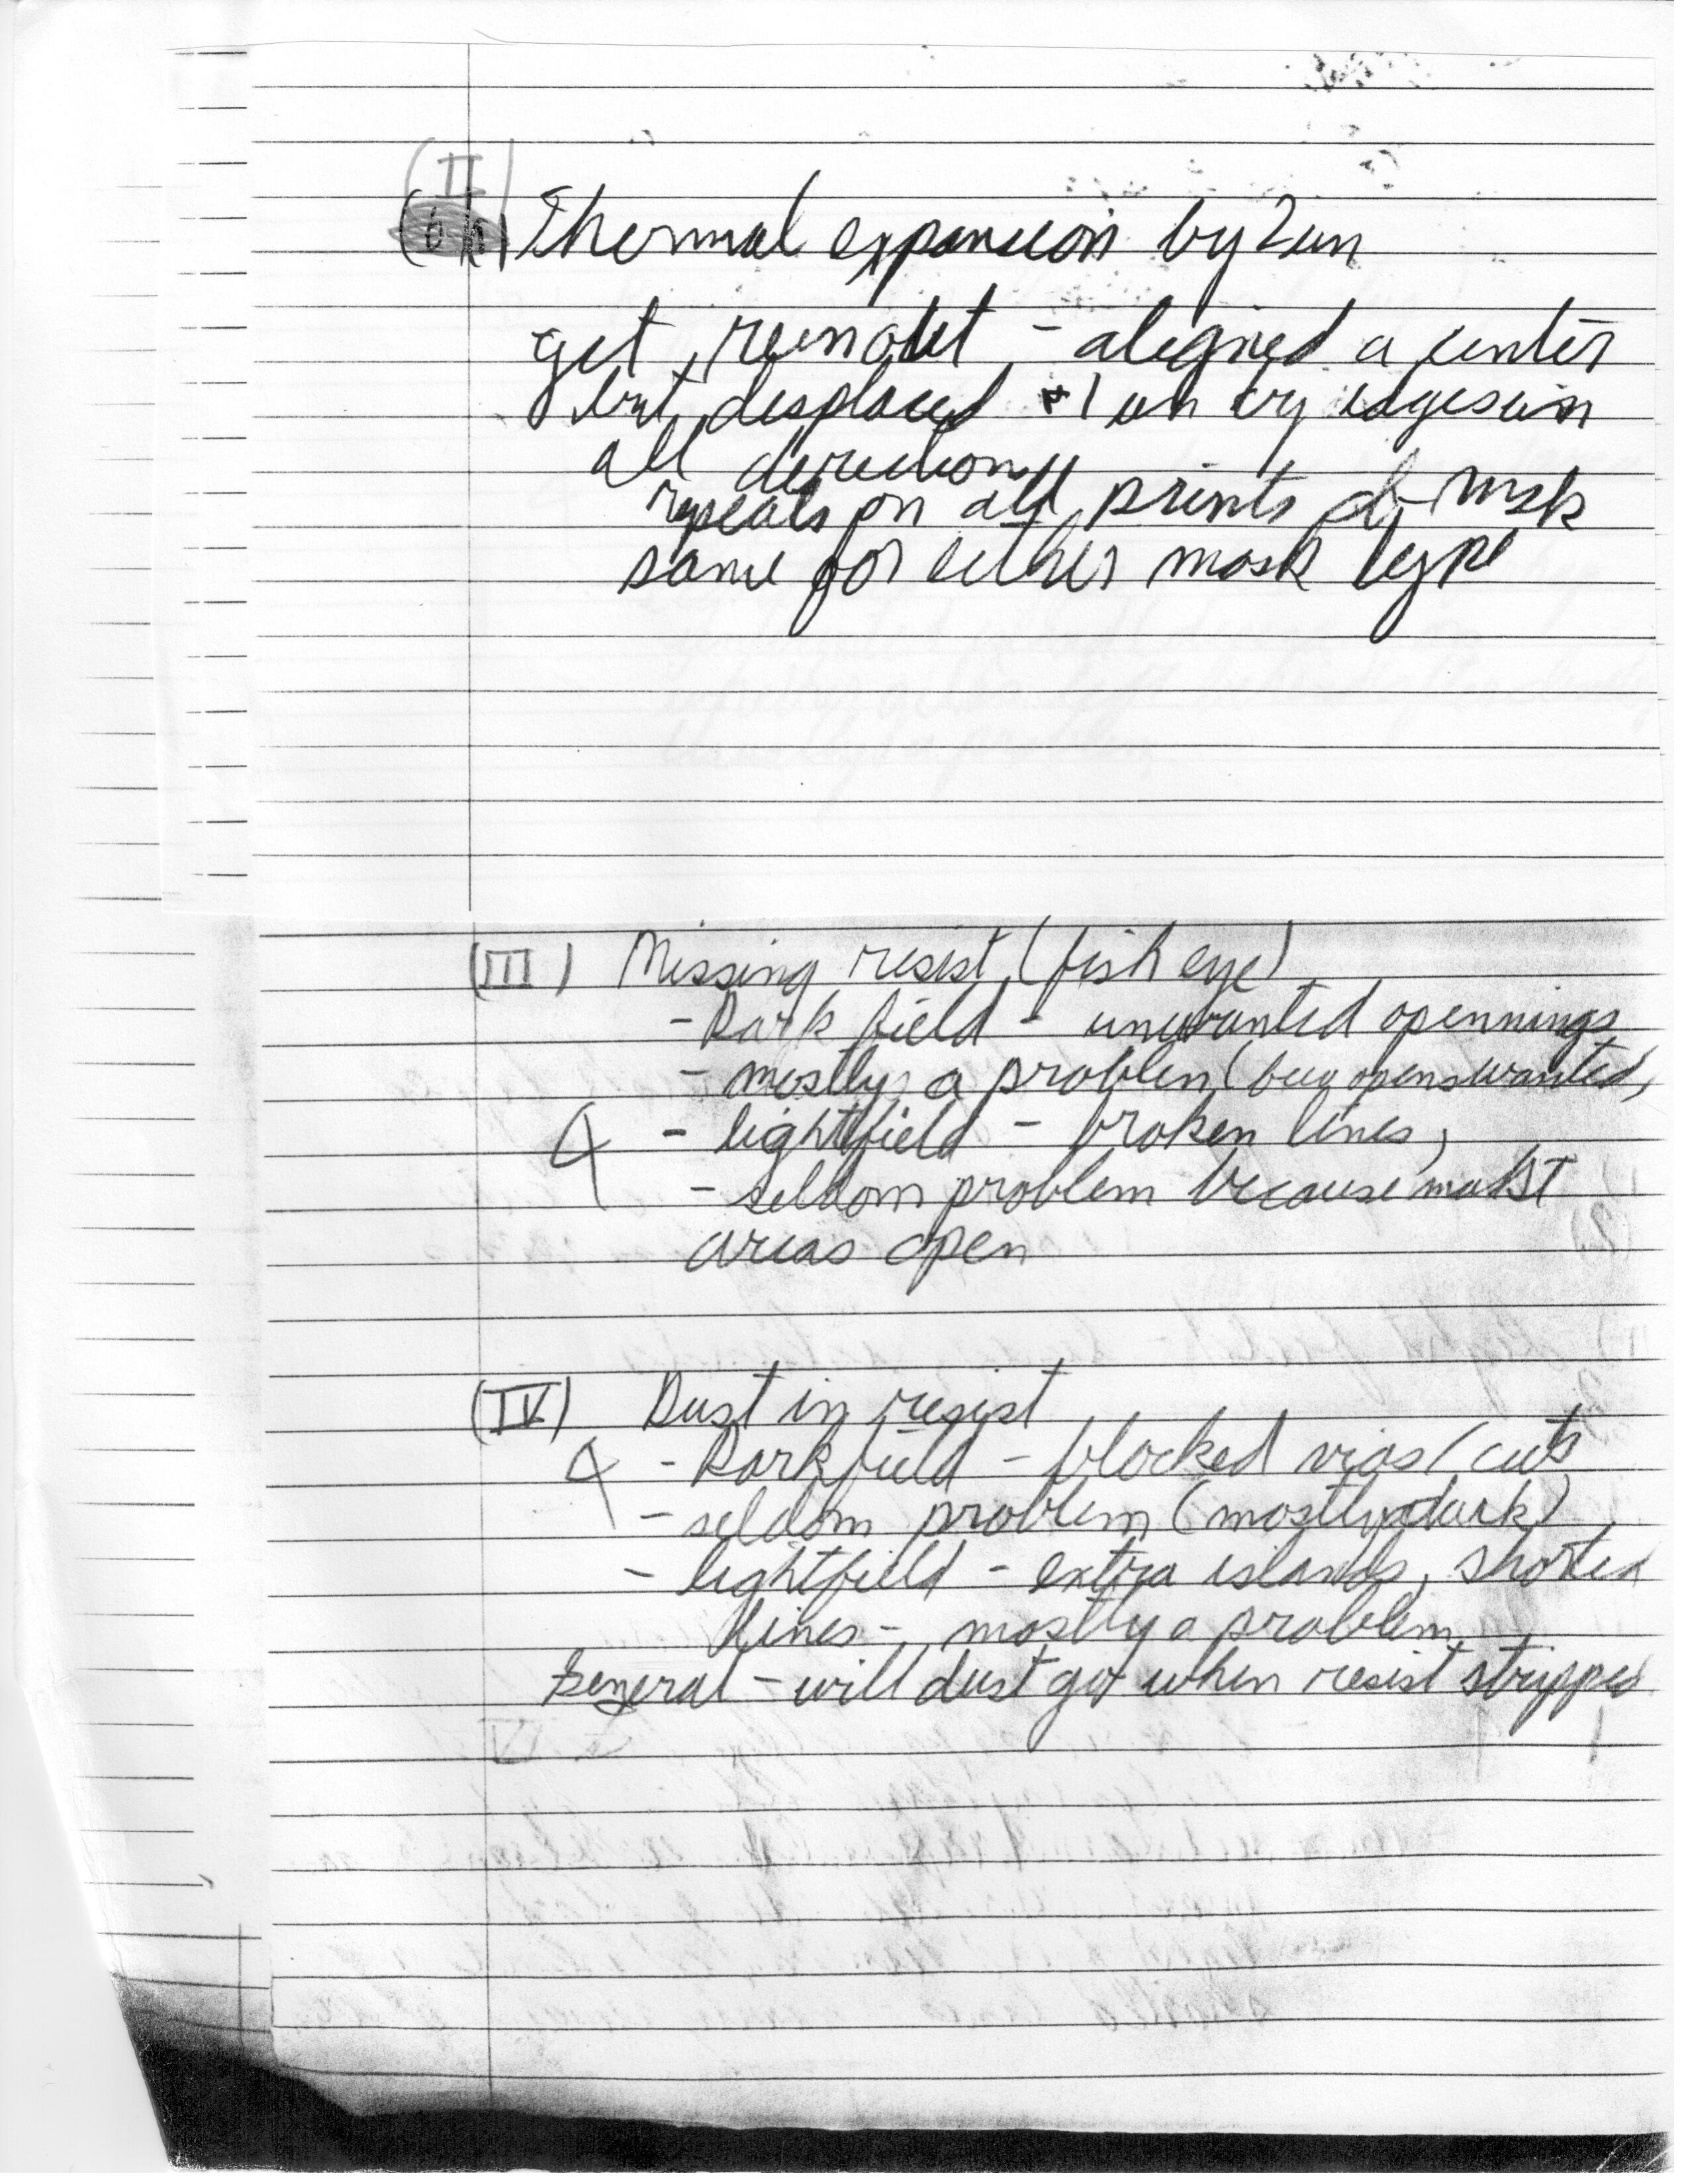 (II)
Thermal expansion by 2um
get runout - aligned a center
but displaced 1um by edges in
all direction
repeats on all prints of mask
same for either mask type
(III) Missing resist (fish eye)
- Dark field - unwanted opennings
- mostly a problem (but opens wanted,
- lightfield - broken lines,
- seldom problem because most
areas open
(IV) Dust in resist
- Darkfield - blocked vias/cuts
- seldom problem (mostly dark)
- lightfield - extra islands, shorted
lines - mostly a problem
General - will dust go when resist stripped